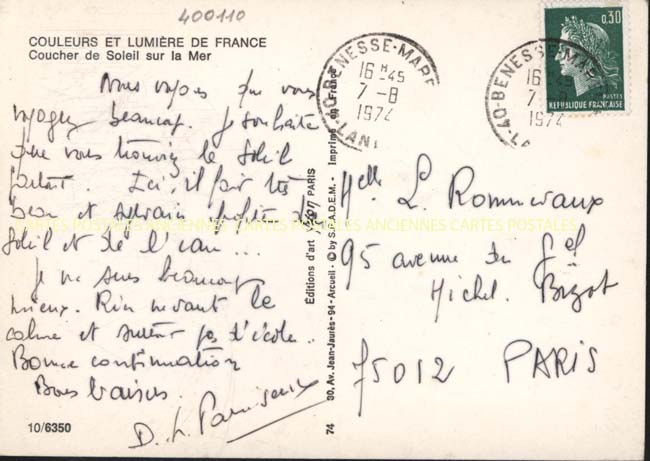 400110
COULEURS ET LUMIÈRE DE FRANCE
Coucher de Soleil sur la Mer
Nous voyons que vous
voyagez beaucoup. Je souhaite
que vous trouviez le Soleil
partout. Ici, il fait très
beau et Sylvain profite du
Soleil et de l'eau...
Je me sens beaucoup
mieux. Rien ne vaut le
calme et surtout pas d'école..
Bonne continuation
Bons baisers.
10/6350
74
30, Av. Jean-Jaurès - 94 - Arcueil - © by S.P.A.D.E.M. - Imprimé en France
Éditions d'art yvon PARIS
40-BENESSE-MARE
16 H -45
7 -8
1974
LAN
0,30
POSTES
REPUBLIQUE FRANÇAISE
40-BENESSE-MA
16 -45
7 -8
1974
Melle L. Rommevaux
95 avenue du Gal
Michel Bizot
75012 PARIS
CARTES POSTALES ANCIENNES CARTES POSTALES ANCIENNES CARTES POSTALES